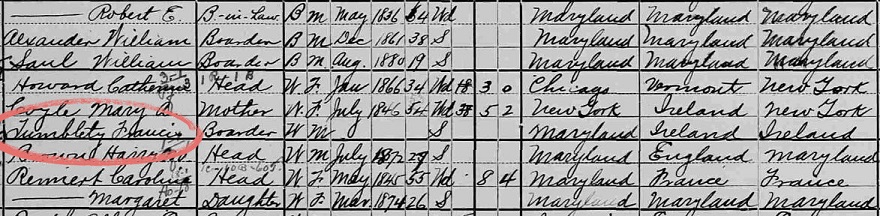 ——— Robert E. B-in-Law B M May 1836 64 Wd Maryland Maryland Maryland
Alexander William Boarder B M Dec 1861 38 S Maryland Maryland Maryland
Saul William Boarder B M Aug. 1880 19 S Maryland Maryland Maryland
Howard Catherine Head W F Jan 1866 34 Wd 18 3 0 Chicago Vermont New York
Mary A Mother W F July 1846 54 Wd 38 5 2 New York Ireland New York
Tumblety Francis Boarder W M S Maryland Ireland Ireland
Brown Harry Head W M July 1872 S Maryland England Maryland
Caroline Head W F May 1845 55 Wd 8 4 Maryland France France
——— Margaret Daughter W F Mar. 1874 26 S Maryland Maryland Maryland